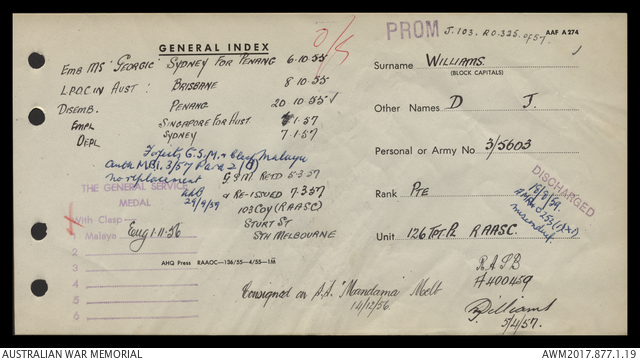 GENERAL INDEX
O/S
PROM
J.103. R.O.325. of 57.
AAF A 274
EMB MS "GEORGIC" SYDNEY FOR PENANG 6.10.55
L.P.O.C IN AUST : BRISBANE 8.10.55
DISEMB. PENANG 20.10.55
EMPL SINGAPORE FOR AUST 1.57
DEPL SYDNEY 7.1.57
Forfeits G.S.M. & Clasp Malaya
Auth MBI. 3/57 Para 2
No replacement
29/9/59
G.S.M RECD 5.3.57
& RE-ISSUED 7.3.57
103 COY (RAASC)
STURT ST
STH MELBOURNE
THE GENERAL SERVICE
MEDAL
With Clasp
1 Malaya Eng 1.11.56
2
3
4
5
6
AHQ Press RAAOC—136/55—4/55—1M
Consigned on S.S. "Mandama" Melb
14/12/56.
Surname WILLIAMS
(BLOCK CAPITALS)
Other Names D J.
Personal or Army No 3/5603
Rank PTE
DISCHARGED
18/8/59
Unit 126 TPT PL RAASC.
R.A.S.B
#400459
Williams
5/4/57.
AUSTRALIAN WAR MEMORIAL
AWM2017.877.1.19